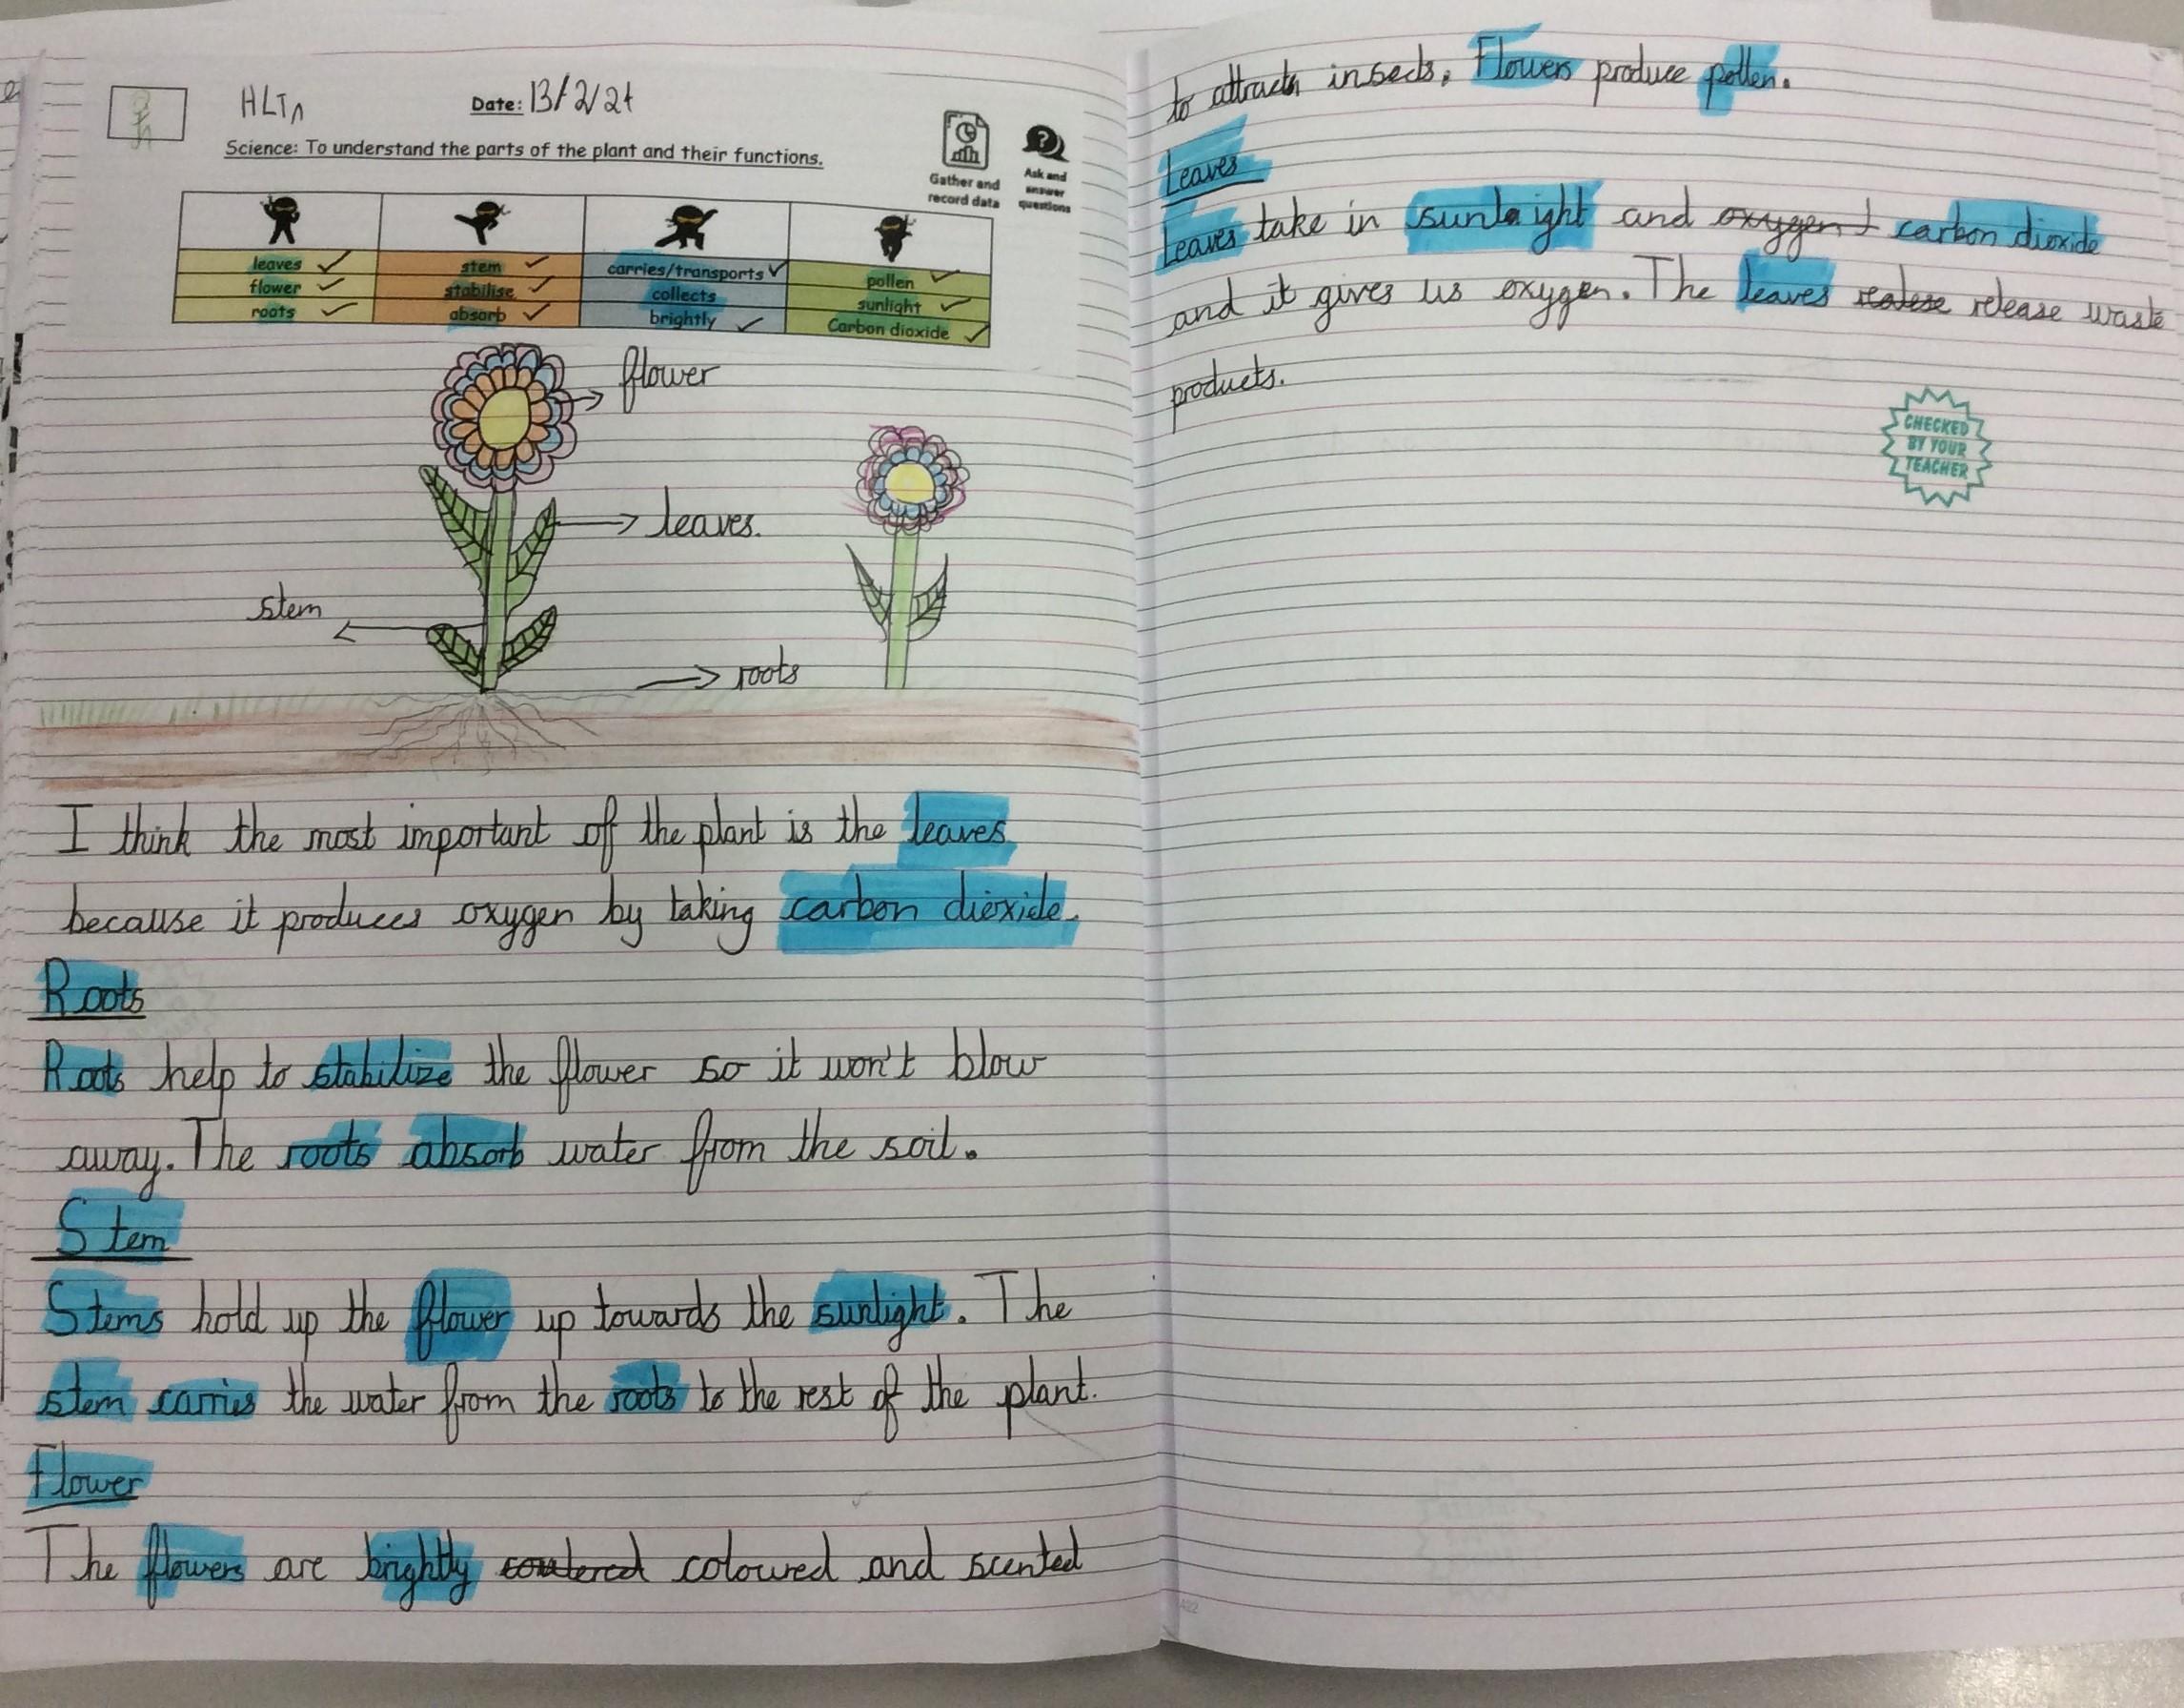 HLTA
Date: 13/2/24
Science: To understand the parts of the plant and their functions.
Gather and record data
Ask and answer questions
leaves ✓ stem ✓ carries/transports ✓ pollen ✓
flower ✓ stabilise ✓ collects sunlight ✓
roots ✓ absorb ✓ brightly ✓ Carbon dioxide ✓
flower
leaves.
stem
roots
I think the most important of the plant is the leaves
because it produces oxygen by taking carbon dioxide.
Roots
Roots help to stabilize the flower so it won't blow
away. The roots absorb water from the soil.
Stem
Stems hold up the flower up towards the sunlight. The
stem carries the water from the roots to the rest of the plant.
Flower
The flowers are brightly coloured and scented
to attracts insects. Flowers produce pollen.
Leaves
Leaves take in sunlight and oxygen carbon dioxide
and it gives us oxygen. The leaves realese release waste
products.
CHECKED
BY YOUR
TEACHER